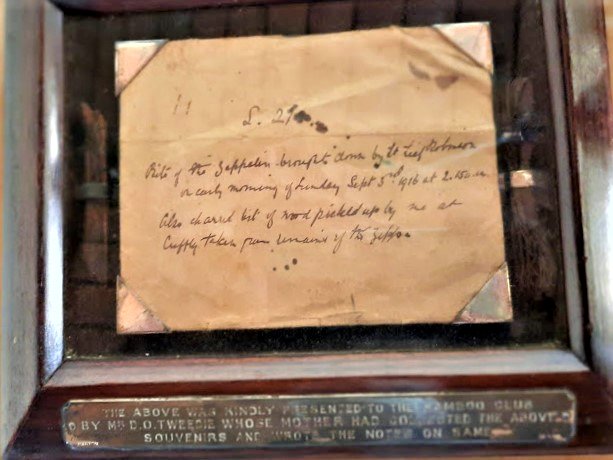 L. 21
Bits of the Zeppelin brought down by Lt Leefe Robinson
on early morning of Sunday Sept 3rd 1916 at 2.15 a.m.
Also charred bit of wood picked up by me at
Cuffly taken from remains of the Zepp.
THE ABOVE WAS KINDLY PRESENTED TO THE BAMBOO CLUB
BY MR D.O. TWEEDIE WHOSE MOTHER HAD COLLECTED THE ABOVE
SOUVENIRS AND WROTE THE NOTES ON SAME